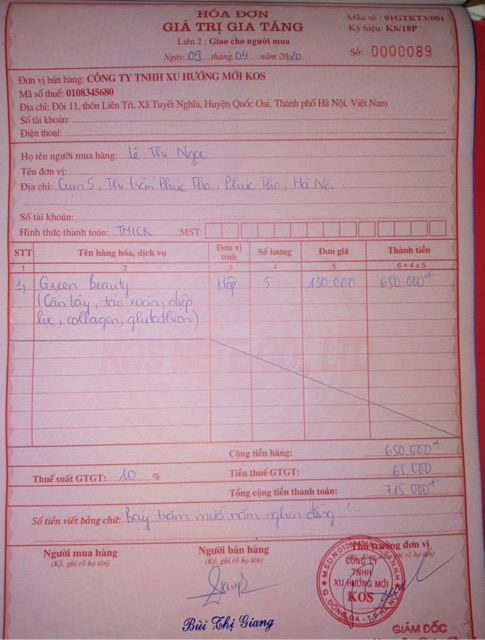 HÓA ĐƠN
GIÁ TRỊ GIA TĂNG
Liên 2 : Giao cho người mua
Ngày 09 tháng 04 năm 2020
Mẫu số : 01GTKT3/001
Ký hiệu: KS/18P
Số: 0000089
Đơn vị bán hàng: CÔNG TY TNHH XU HƯỚNG MỚI KOS
Mã số thuế: 0108345680
Địa chỉ: Đội 11, thôn Liên Trì, Xã Tuyết Nghĩa, Huyện Quốc Oai, Thành phố Hà Nội, Việt Nam
Số tài khoản:
Điện thoại:
Họ tên người mua hàng: Lê Thị Ngọc
Tên đơn vị:
Địa chỉ: Cụm 5, Thị trấn Phúc Thọ, Phúc Thọ, Hà Nội
Số tài khoản:
Hình thức thanh toán: TMCK MST:
STT Tên hàng hóa, dịch vụ Đơn vị tính Số lượng Đơn giá Thành tiền
1 2 3 4 5 6=4x5
1, Green Beauty Hộp 5 130.000 650.000đ
(Cần tây, tảo xoắn, diệp
lục, collagen, glutathion)
Cộng tiền hàng: 650.000đ
Thuế suất GTGT: 10 % Tiền thuế GTGT: 65 000
Tổng cộng tiền thanh toán: 715.000đ
Số tiền viết bằng chữ: Bảy trăm mười năm nghìn đồng
Người mua hàng Người bán hàng Thủ trưởng đơn vị
(Ký, ghi rõ họ tên) (Ký, ghi rõ họ tên)
CÔNG TY
TNHH
XU HƯỚNG MỚI
KOS
Bùi Thị Giang
GIÁM ĐỐC